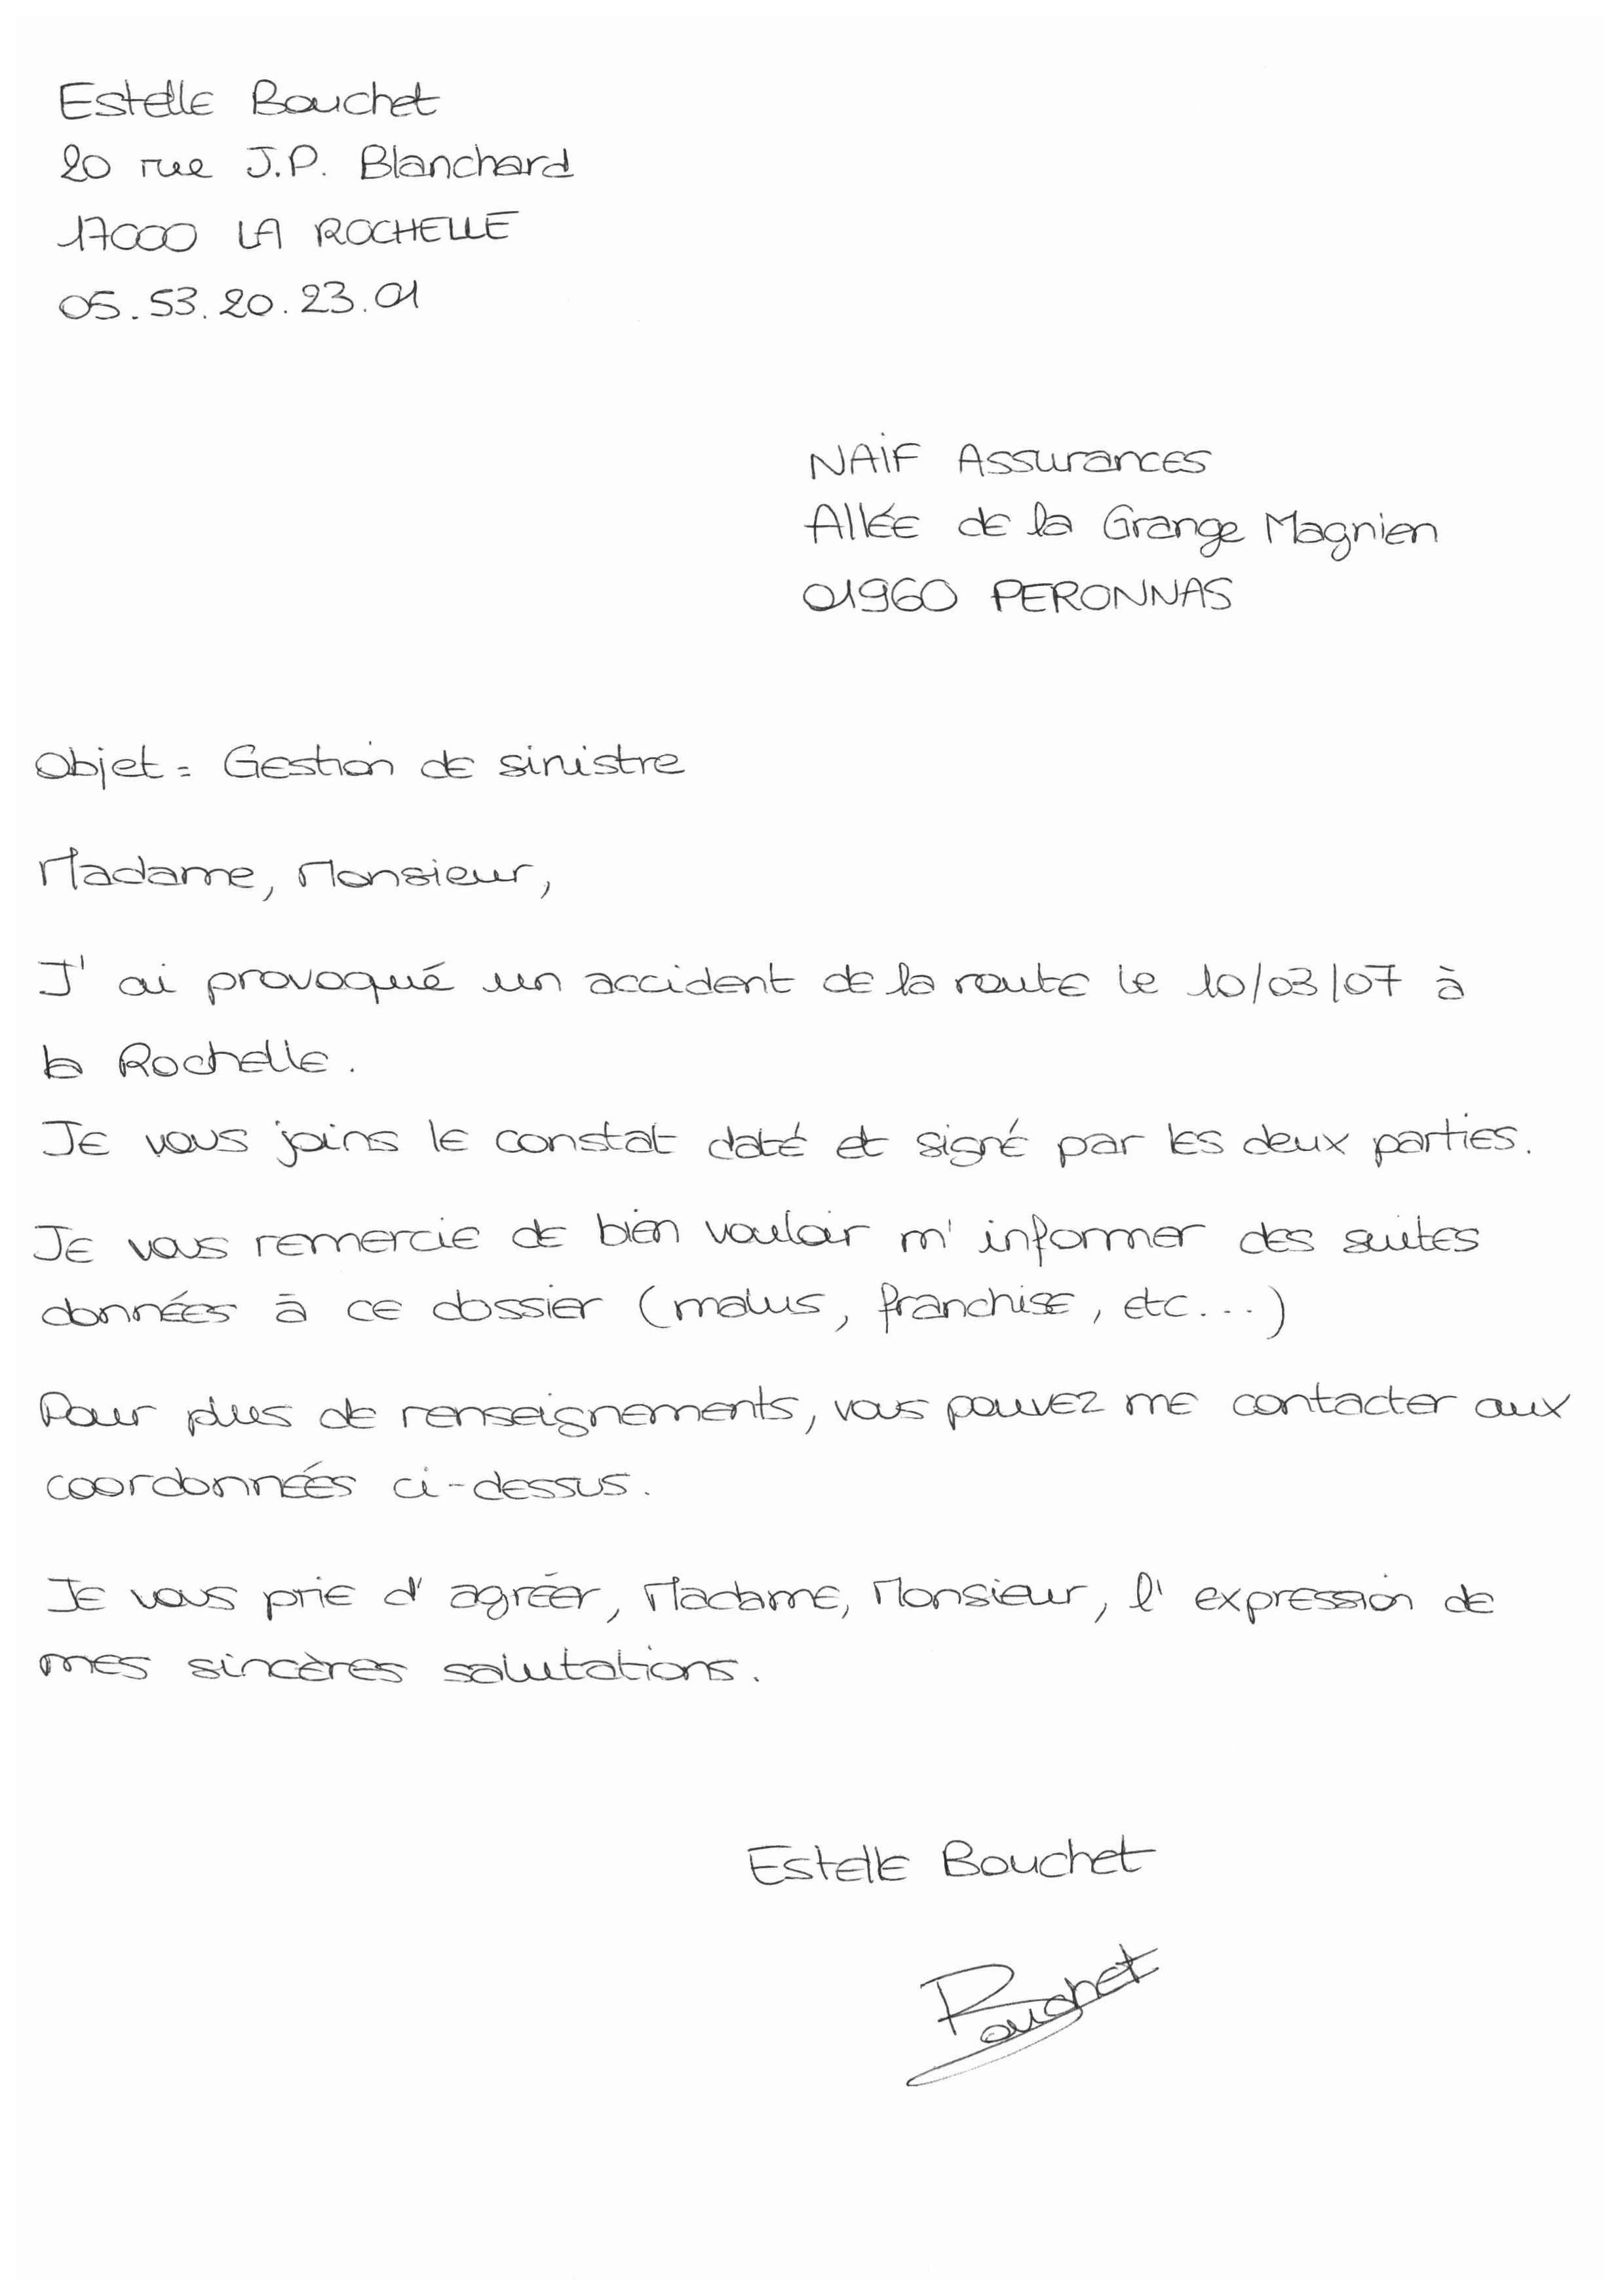 Estelle Bouchet
20 rue J.P. Blanchard
17000 LA ROCHELLE
05.53.20.23.01
NAIF Assurances
Allée de la Grange Magnien
01960 PERONNAS
Objet : Gestion de sinistre
Madame, Monsieur,
J'ai provoqué un accident de la route le 10/03/07 à
la Rochelle.
Je vous joins le constat daté et signé par les deux parties.
Je vous remercie de bien vouloir m'informer des suites
données à ce dossier (malus, franchise, etc...)
Pour plus de renseignements, vous pouvez me contacter aux
coordonnées ci-dessus.
Je vous prie d'agréer, Madame, Monsieur, l'expression de
mes sincères salutations.
Estelle Bouchet
Bouchet